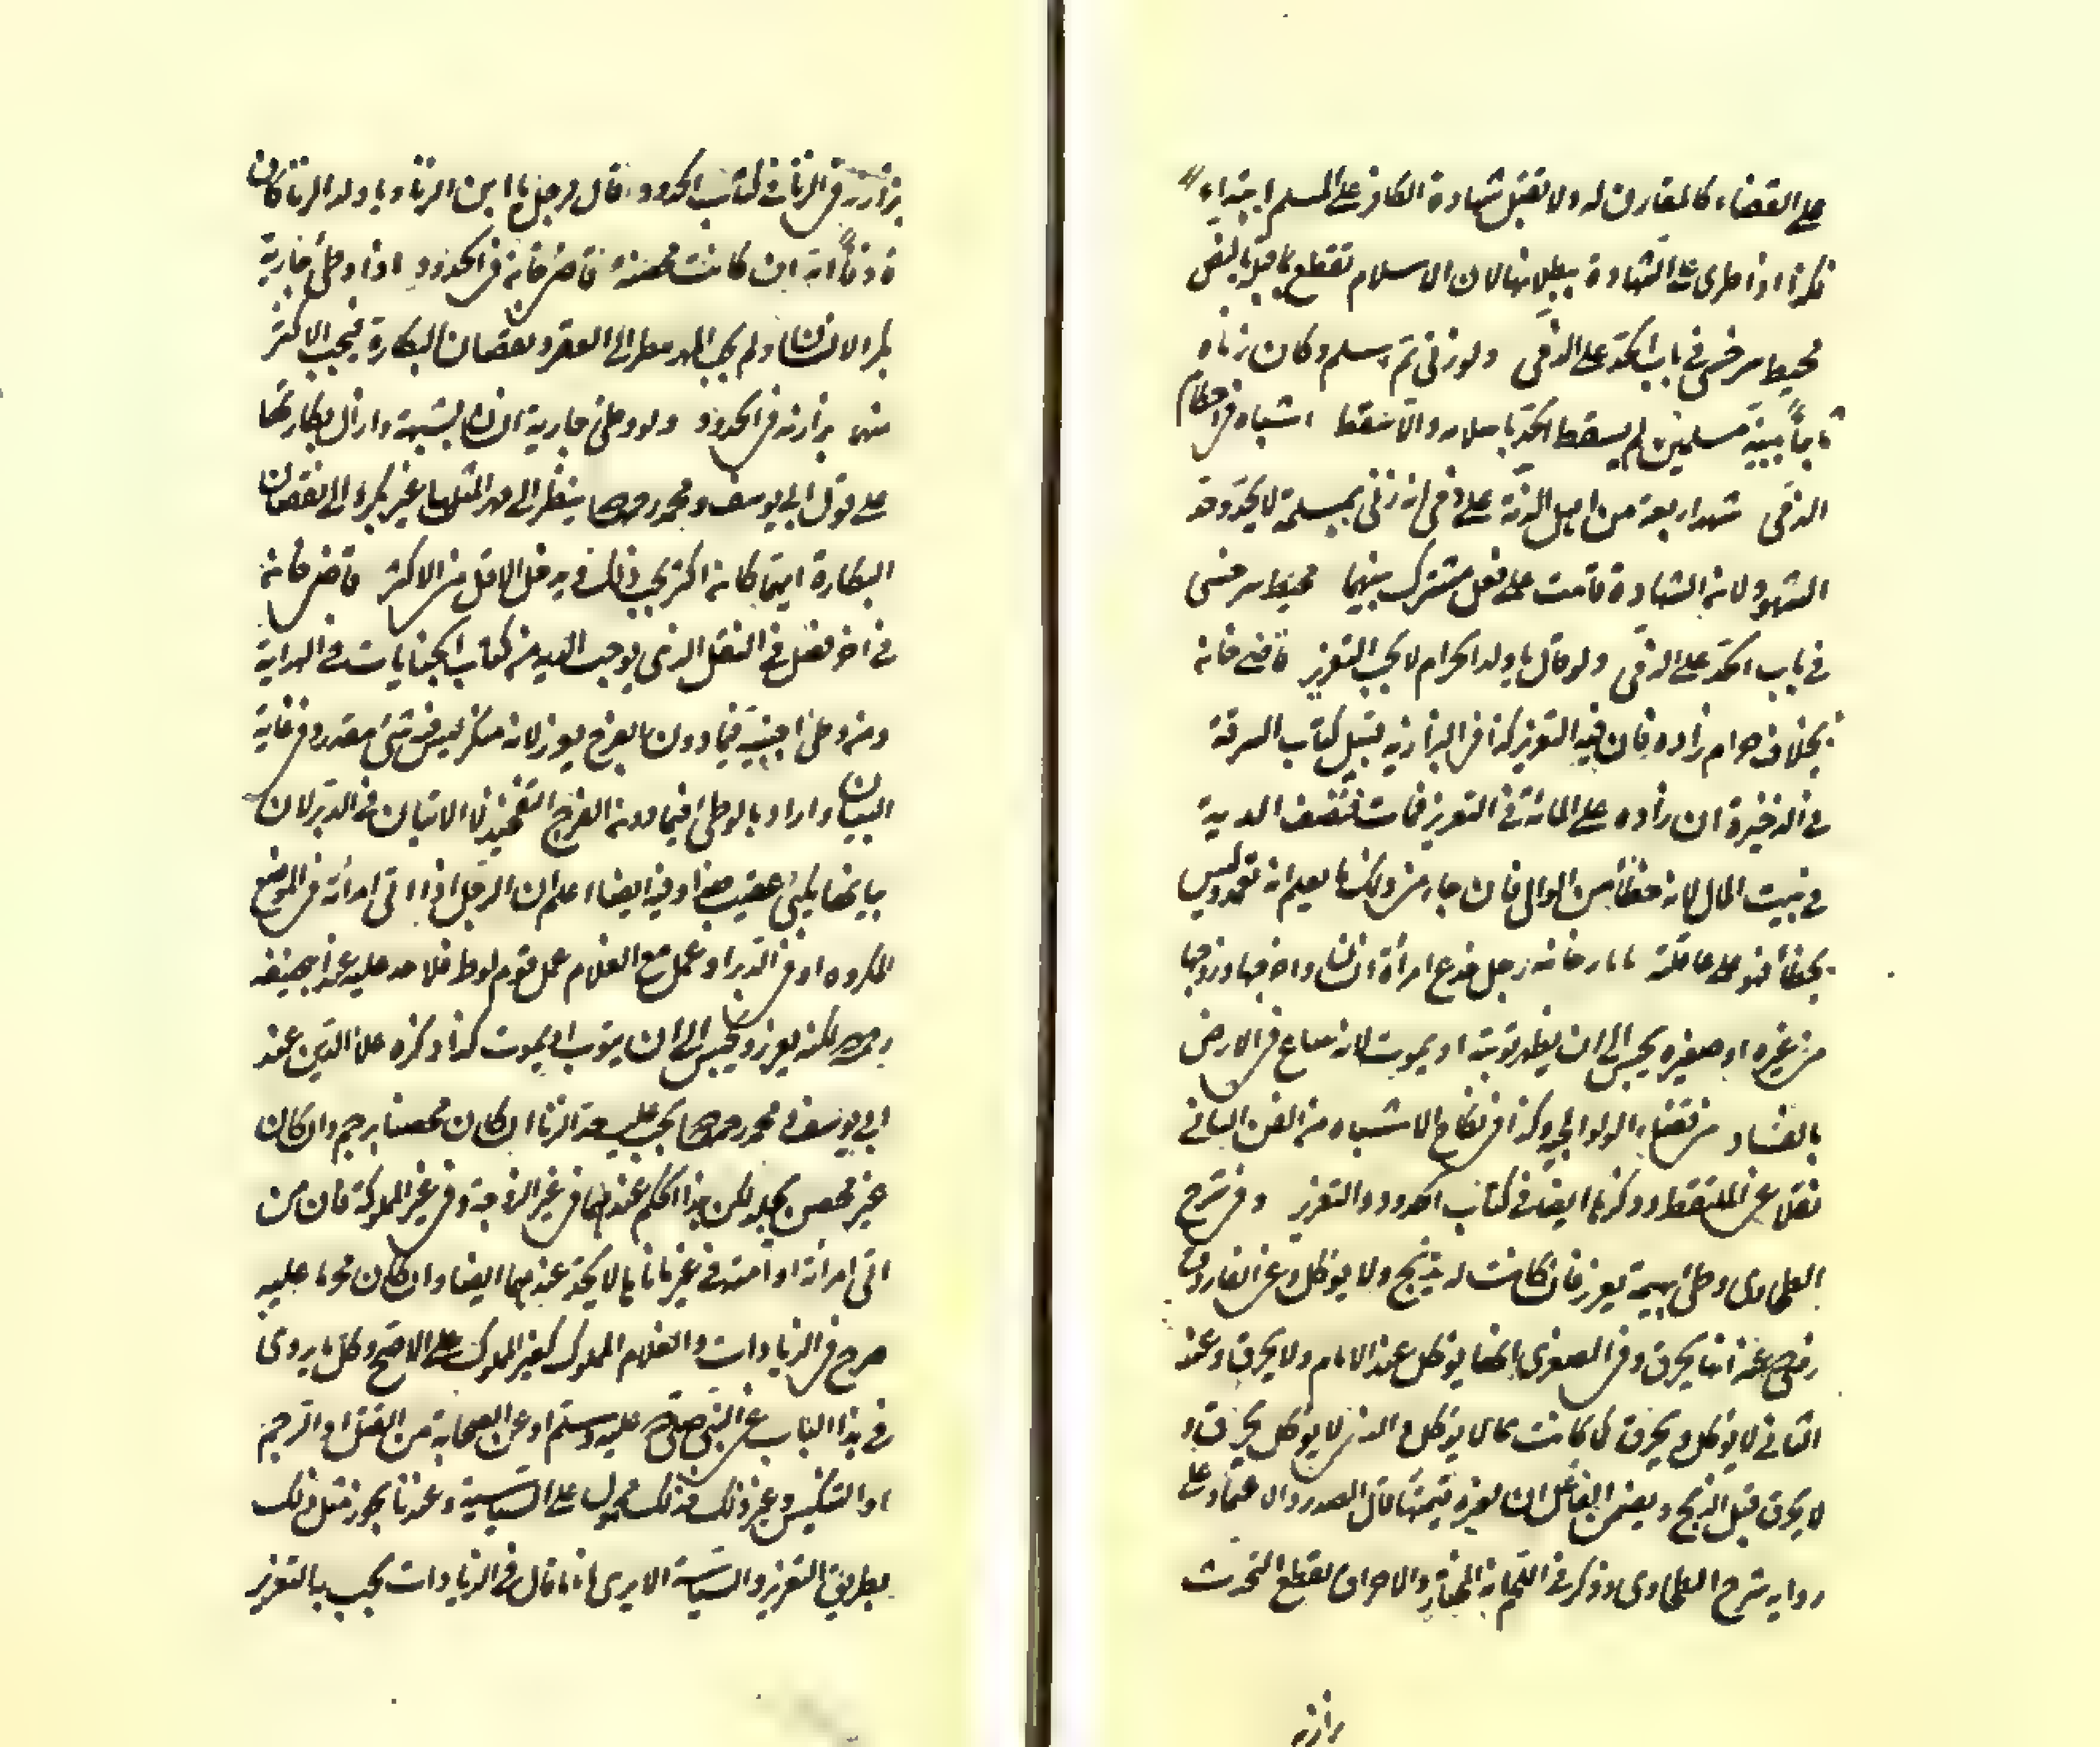 على القضاء كالمقارن له ولا تقبل شهادة الكافر على المسلم ابتداء
فكذا اذا طرى على الشهادة يبطلانها لان الاسلام تقطع ما قبله بالنص
محيط سرخسى فى باب الحد على الذمى ولو زنى ثم اسلم وكان زناه
ثابتاً ببينة مسلمين لم يسقط الحد باسلامه والا سقط اشباه فى احكام
الذمى شهد اربعة من اهل الذمة على ذمى انه زنى بمسلمة لا يحد وحد
الشهود لان الشهادة قامت على فعل مشترك بينهما محيط سرخسى
فى باب الحد على الذمى ولو قال يا ولد الحرام لا يجب التعزير قاضى خان
بخلاف حرام زاده فان فيه التعزير كذا فى البزازية قبيل كتاب السرقة
فى الذخيرة ان زاده على المائة فى التعزير فمات فنصف الدية
فى بيت المال لانه خطأ من الوالى فان جاء من ذلك ما يعلم انه تعمد وليس
بخطأ فهو على عاقلته تاتارخانية رجل خدع امرأة انسان واخرجها وزوجها
من غيره او صغيرة يحبس الى ان يظهر توبته او يموت لانه ساع فى الارض
بالفساد من قضاء الولوالجية وكذا فى نكاح الاشباه من الفن الثانى
نقلا عن الملتقط وذكرنا ايضا فى كتاب الحدود والتعزير وفى شرح
الطحاوى وطئ بهيمة يعزر فان كانت له يذبح ولا يؤكل وعن الفاروق
رضى عنه انها يحرق وفى الصغرى انها يؤكل عند الامام ولا يحرق وعند
الثانى لا يؤكل ويحرق لما كانت مما لا يؤكل والذى لا يؤكل يحرق و
لا يحرق قبل الذبح ويضمن الفاعل ان لغيره قيمتها قال الصدر والاعتماد على
رواية شرح الطحاوى وذكر فى والاحراق لقطع التحدث
بزازية
بزازية فى الزنا فى كتاب الحدود قال لرجل يا ابن الزنا ويا ولد الزنا كان
قذفاً انه ان كانت محصنة قاضى خان فى الحدود اذا وطئ جارية
بكرا لانسان ولم يجب المهر ينظر الى العقر ونقصان البكارة فيجب الاكثر
منهما بزازية فى الحدود ولو وطئ جارية انسان بشبهة وازال بكارتها
على قول ابى يوسف ومحمد رحمهما ينظر الى مهر مثلها غير بكر والى نقصان
البكارة ايهما كان اكثر يجب ذلك ويدخل الاقل فى الاكثر قاضى خان
فى اخر فصل فى القتل الذى يوجب الدية من كتاب الجنايات فى الهداية
ومن وطئ اجنبية فيما دون الفرج يعزر لانه منكر ليس فيه شئ مقدر وفى غاية
البيان واراد بالوطئ فيما دون الفرج التفخيذ لا الاتيان فى الدبر لان
بيانها يجئ عقيب هذا وفيه ايضا اعلم ان الرجل اذا اتى امرأته فى الموضع
المكروه او فى الدبر او عمل مع الغلام عمل قوم لوط فلا حد عليه عند ابى حنيفه
رحمه لكنه يعزر ويحبس الى ان يتوب او يموت كذا ذكره علاء الدين عند
ابى يوسف ومحمد رحمهما يجب عليه حد الزنا ان كان محصنا يرجم وان كان
غير محصن يجلد لكن هذا الحكم عندهما فى غير الزوجة وفى غير المملوكة فان من
اتى امرأته او امته فى غير مأتاها لا يحد عندهما ايضا وان كان محرما عليه
صرح فى الزيادات والغلام المملوك كغير المملوك على الاصح وكل ما يروى
فى هذا الباب عن النبى صلى عليه وسلم او عن الصحابة من القتل او الرجم
او التنكيس وغير ذلك فذلك محمول على السياسة وعندنا يجوز قتل ذلك
بطريق التعزير والسياسة الا يرى انه قال فى الزيادات يجب بالتعزير